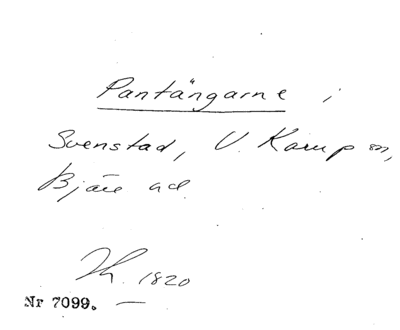 Pantängarne i
Svenstad, V. Karup sn,
Bjäre hd.
Th. 1820
Nr 7099. —